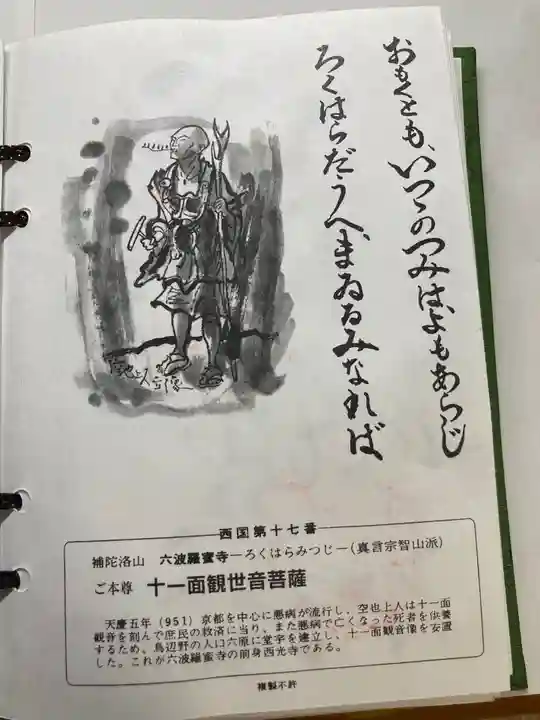 おもくとも、いつゝのつみはよもあらじ
ろくはらだうへまゐるみなれば
空也上人立像
西国第十七番
補陀洛山 六波羅蜜寺―ろくはらみつじ―(真言宗智山派)
ご本尊 十一面観世音菩薩
天慶五年(951)京都を中心に悪病が流行し、空也上人は十一面
観音を刻んで庶民の救済に当り、また悪病で亡くなった死者を供養
するため、鳥辺野の入口六原に堂宇を建立し、十一面観音像を安置
した。これが六波羅蜜寺の前身西光寺である。
複製不許